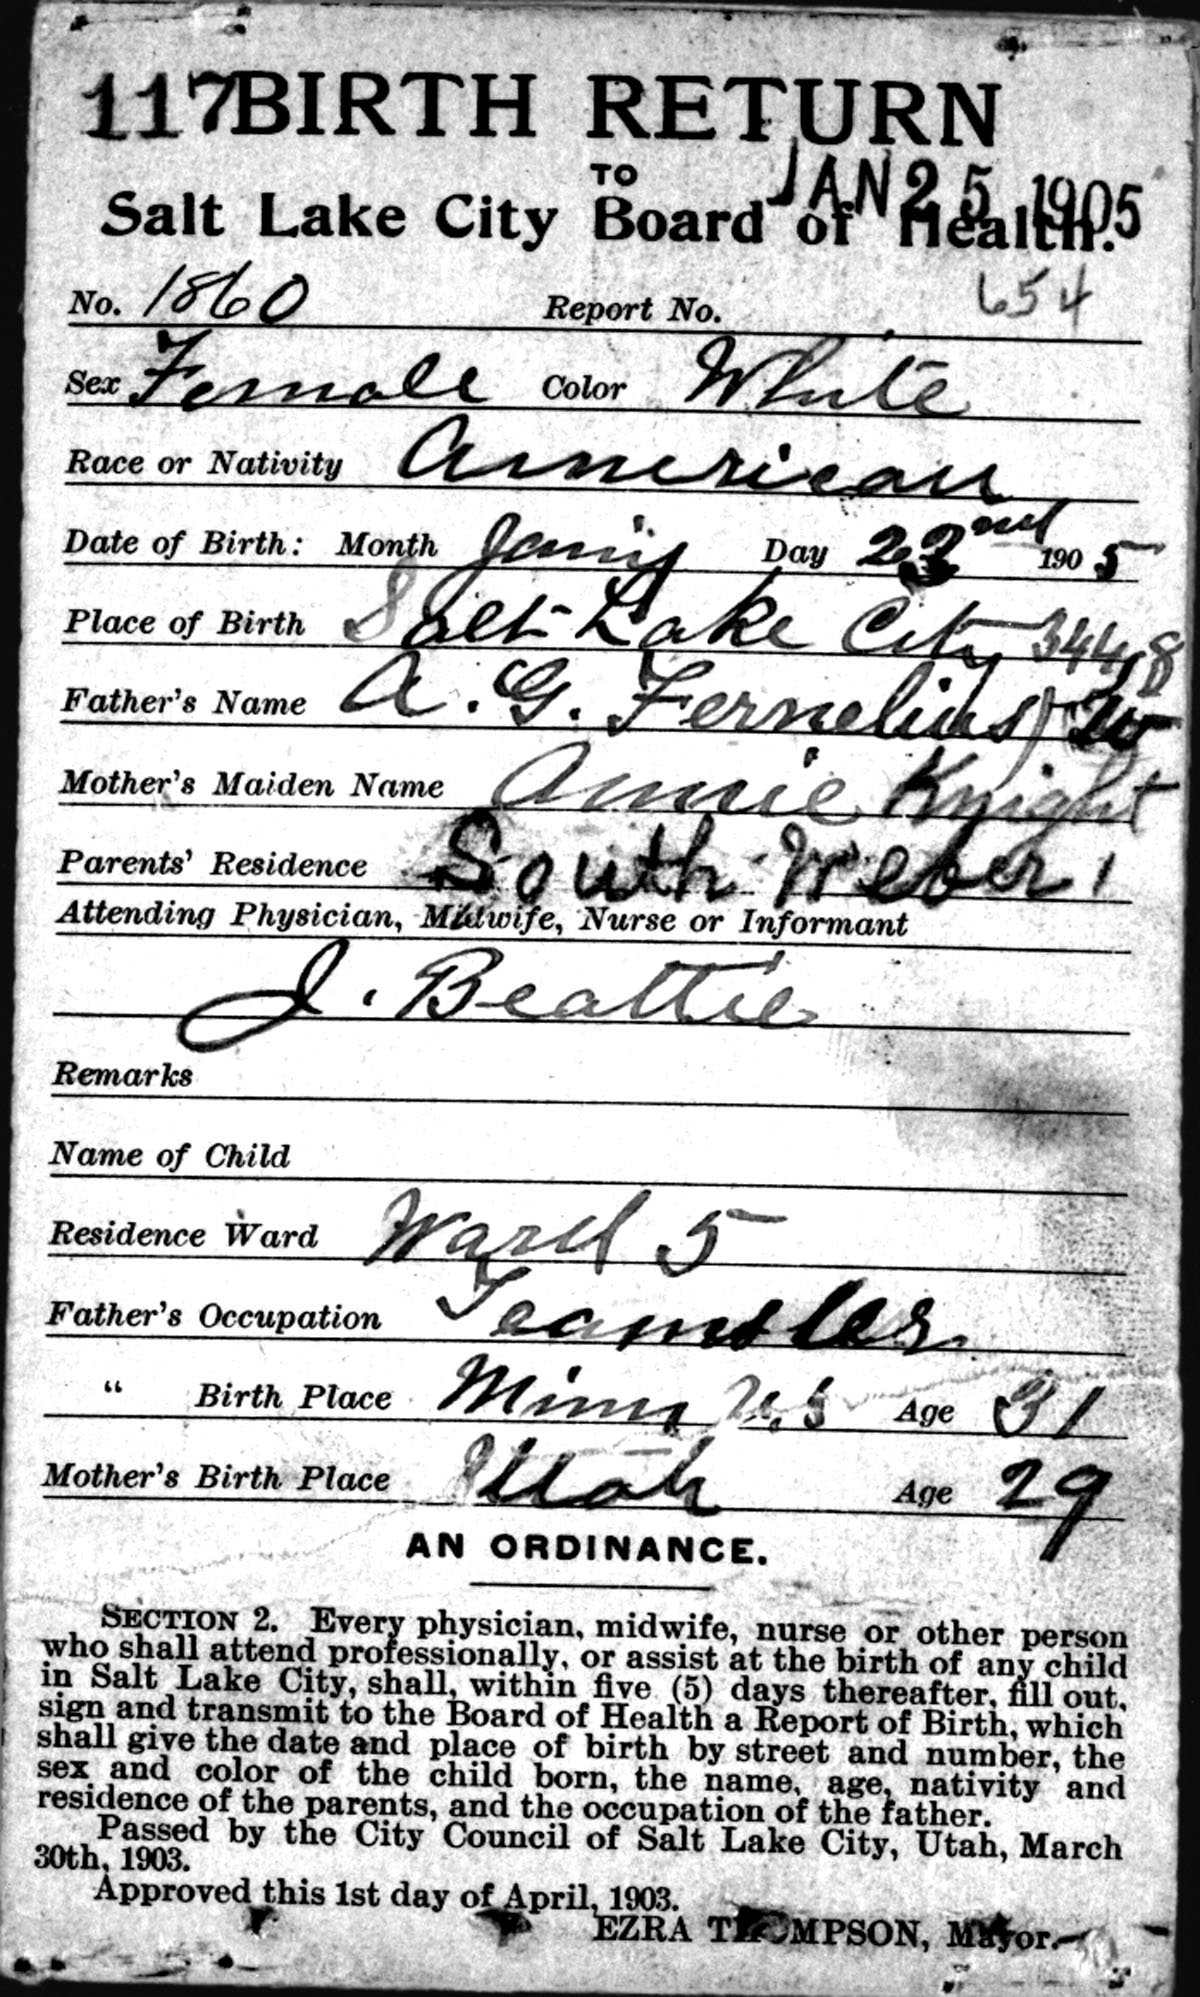 117 BIRTH RETURN
TO
JAN 25 1905
Salt Lake City Board of Health.
654
No. 1860 Report No.
Sex Female Color White
Race or Nativity American
Date of Birth: Month Jany Day 22nd 1905
Place of Birth Salt Lake City 344 8
Father's Name A. G. Fernelius
Mother's Maiden Name Annie Knight
Parents' Residence South Weber
Attending Physician, Midwife, Nurse or Informant
J. Beattie
Remarks
Name of Child
Residence Ward Ward 5
Father's Occupation Teamster
“ Birth Place Minn U.S Age 31
Mother's Birth Place Utah Age 29
AN ORDINANCE.
SECTION 2. Every physician, midwife, nurse or other person
who shall attend professionally, or assist at the birth of any child
in Salt Lake City, shall, within five (5) days thereafter, fill out,
sign and transmit to the Board of Health a Report of Birth, which
shall give the date and place of birth by street and number, the
sex and color of the child born, the name, age, nativity and
residence of the parents, and the occupation of the father.
Passed by the City Council of Salt Lake City, Utah, March
30th, 1903.
Approved this 1st day of April, 1903.
EZRA THOMPSON, Mayor.